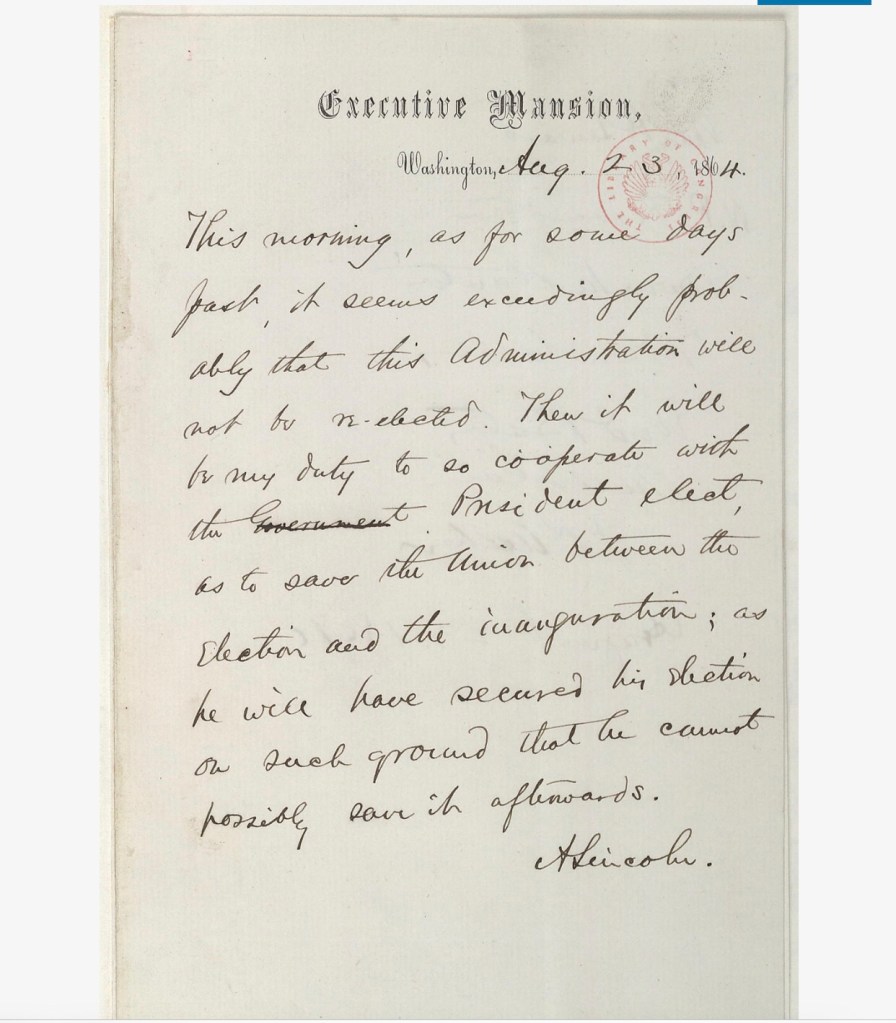 Executive Mansion,
Washington, Aug. 23, 1864.
THE LIBRARY OF CONGRESS
This morning, as for some days
past, it seems exceedingly prob-
ably that this Administration will
not be re-elected. Then it will
be my duty to so co-operate with
the Government President elect,
as to save the Union between the
election and the inauguration; as
he will have secured his election
on such ground that he cannot
possibly save it afterwards.
A Lincoln.